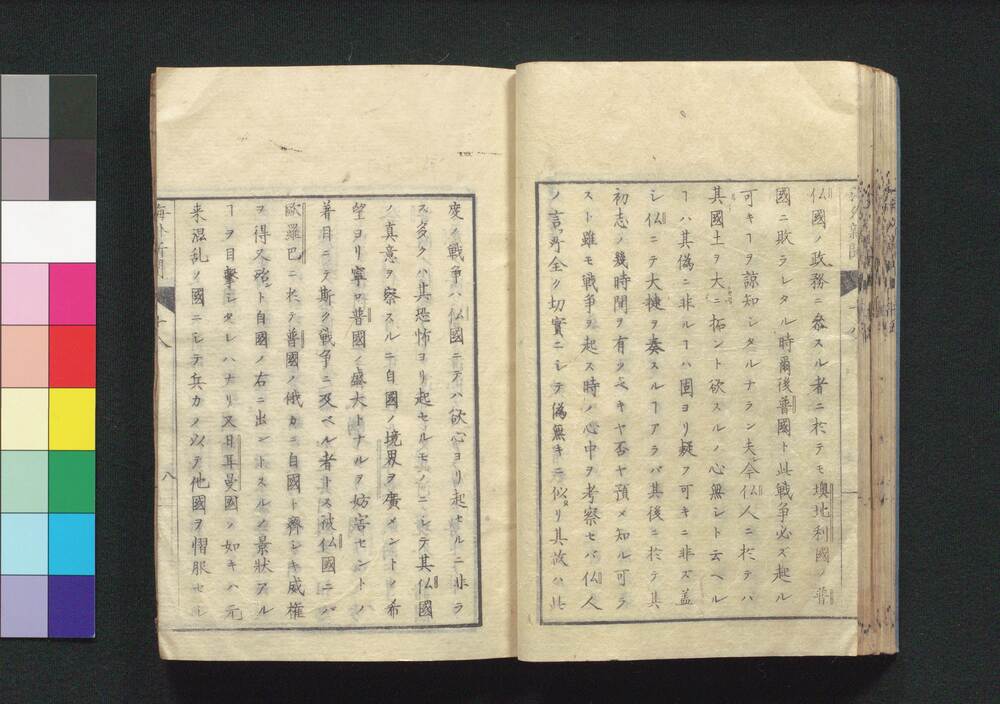 仏國ノ政務ニ參スル者ニ於テモ墺地利國ノ普
國ニ敗ラレタル時爾後普國ト此戦争必ズ起ル
可キヿヲ諒知シタルナラン夫今仏人ニ於テハ
其國土ヲ大ニ拓ント欲スルノ心無シト云ヘル
ヿハ其偽ニ非ルヿハ固ヨリ疑フ可キニ非ズ盖
シ仏ニテ大捷ヲ奏スルヿアラバ其後ニ於テ其
初志ノ幾時間ヲ有ツベキヤ否ヤ預メ知ル可ラ
スト雖モ戦争ヲ起ス時ノ心中ヲ考察セバ仏人
ノ言フ所全ク切實ニシテ偽無キニ似タリ其故ハ此
度ノ戦争ハ仏國ニテハ欲心ヨリ起セルニ非ラ
ス多クハ其恐怖ヨリ起セルモノニシテ其仏國
ノ真意ヲ察スルニ自國ノ境界ヲ廣メントノ希
望ヨリ寧ロ普國ノ盛大トナルヲ妨害セントノ
着目ニテ斯ク戦争ニ及ベル者トス彼仏國ニハ
歐羅巴ニ於テ普國ノ俄カニ自國ト齊シキ威權
ヲ得又殆ント自國ノ右ニ出ントスルノ景状アル
ヿヲ目撃シタレハナリ又日耳曼國ノ如キハ元
来混乱ノ國ニシテ兵力ノ以テ他國ヲ慴服セシ
海外新聞
十八
八